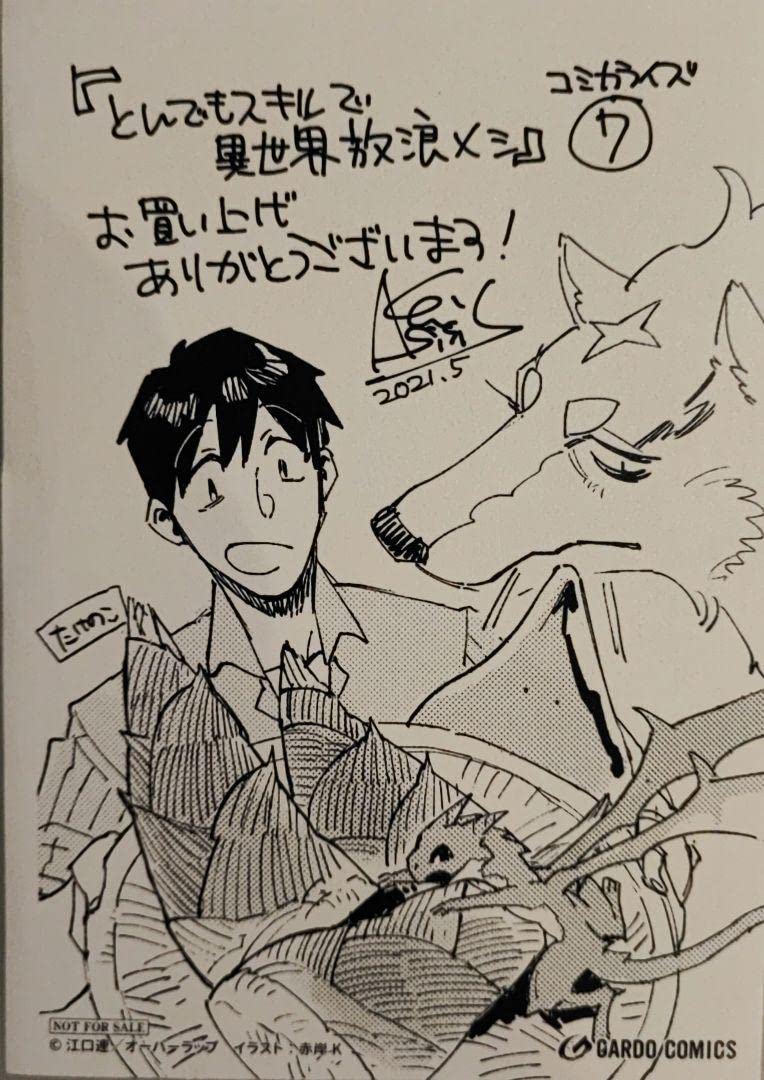 『とんでもスキルで
異世界放浪メシ』
コミカライズ
⑦
お買い上げ
ありがとうございまする!
2021.5
たけのこ
NOT FOR SALE
© 江口連/オーバーラップ イラスト:赤岸K
GARDO COMICS